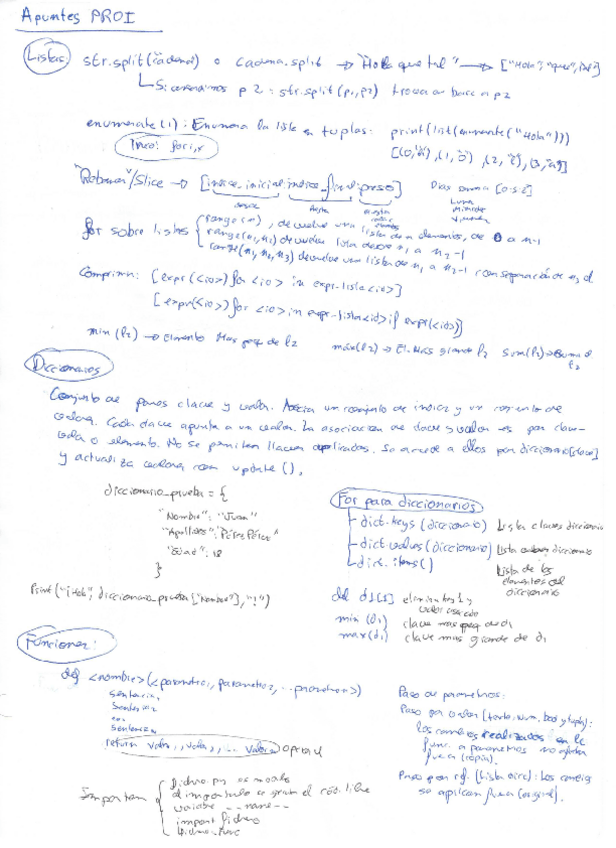 Apuntes PROI
Listas: str.split(cadena) o cadena.split → "Hola que tal" → ["Hola","que","tal"]
Si p2: str.split(p1,p2) a p2
enumerate(l): Enumera la lista en tuplas: print(list(enumerate("Hola")))
for i,x
"Rebanar"/Slice → [indice_inicial:indice_final:paso]
desde hasta
for sobre listas
range(n), devuelve una lista de n elementos, de 0 a n-1
range(n1,n2) devuelve lista desde n1 a n2-1
range(n1,n2,n3) devuelve una lista de n1 a n2-1 con separación de n3
Comprimir: [expr(<id>) for <id> in expr-lista<id>]
[expr(<id>) for <id> in expr-lista<id> if expr(<id>)]
min(l2) → Elemento Mas peq de l2 max(l2) → El. Mas grande l2 sum(l2) → Suma
l2
Diccionarios
Conjunto de pares clave y valor. Asocia un conjunto de indices y un conjunto de
valores. Cada clave apunta a un valor. La asociacion de clave y valor es par clave-
valor o elemento. No se permiten llaves duplicadas. Se accede a ellos por diccionario[clave]
y actualiza valores con update().
diccionario_prueba = {
"Nombre": "Juan"
"Apellidos": "Pérez Pérez"
"Edad": 18
}
Print("¡Hola", diccionario_prueba["Nombre"],"!")
For para diccionarios
dict.keys(diccionario) Lista claves diccionario
dict.values(diccionario) Lista valores diccionario
dict.items() Lista de los
elementos del
diccionario
del d1[1] elimina
valor asociado
min(d1) clave mas peq de d1
max(d1) clave mas grande de d1
Funciones:
def <nombre>(<parametro1, parametro2, ...parametron>)
sentencia1
sentencia2
...
sentencian
return valor1, valor2, ... valorn
Paso de parametros:
Paso por valor
los cambios realizados en la
func. a parametros no afectan
fuera (copia).
Paso por ref. : Los cambios
se aplican fuera (original).
Importan
import fichero